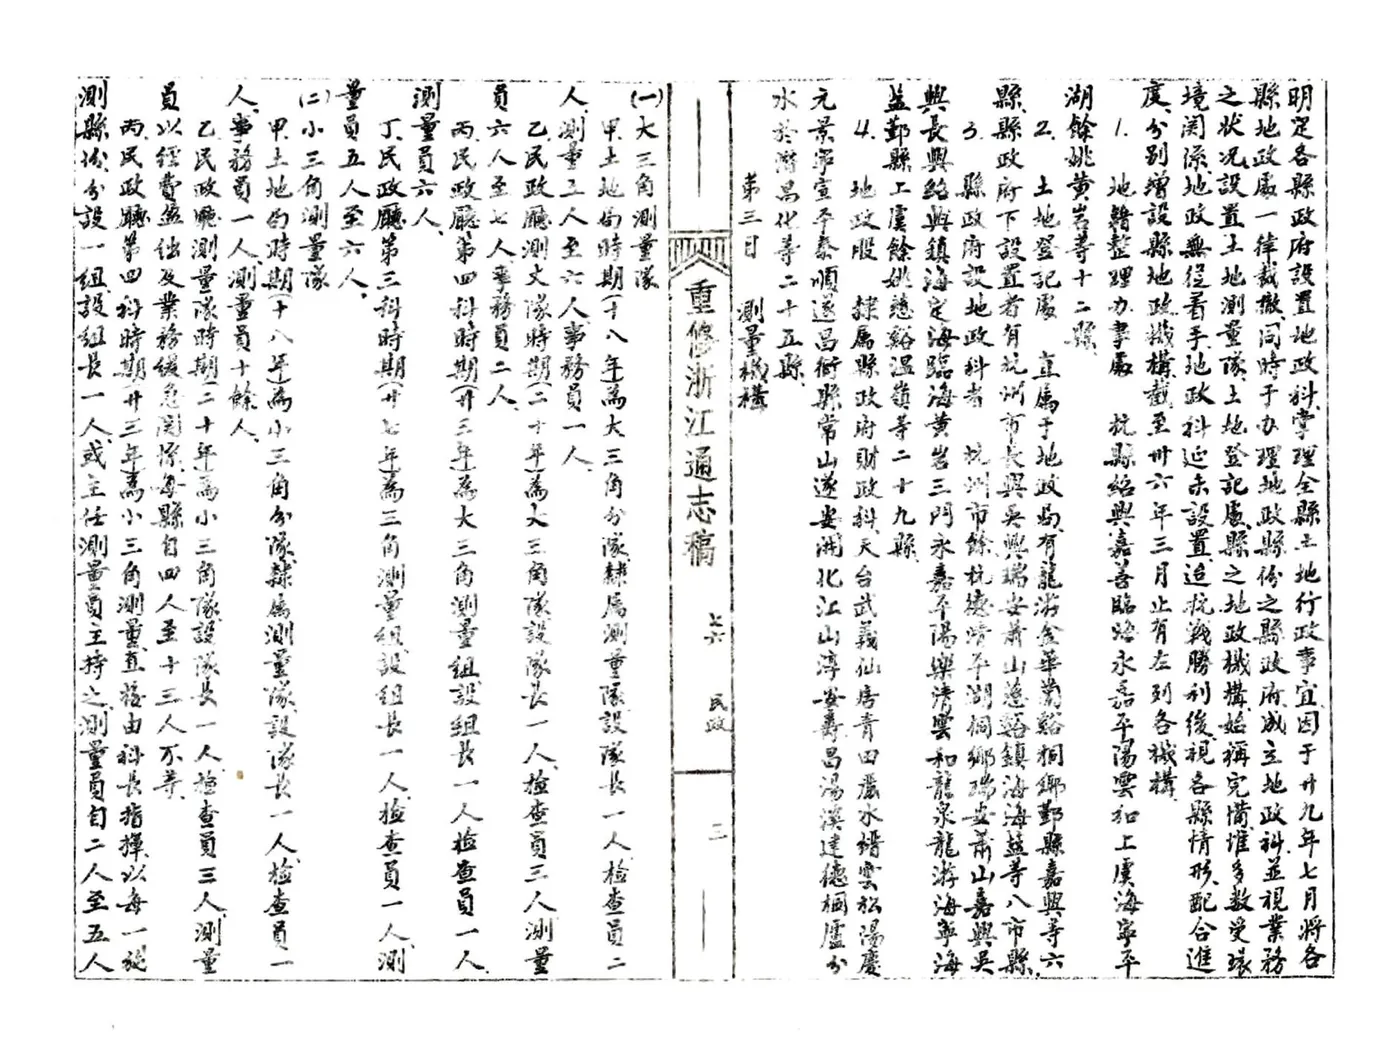 明定各縣政府設置地政科掌理全縣土地行政事宜因于廾九年七月將各
縣地政處一律裁撤同時于办理地政縣份之縣政府成立地政科並視業務
之狀况設置土地測量隊土地登記處縣之地政機構始稱完備惟多數受环
境関係地政無從着手地政科延未設置迨抗戰勝利後視各縣情形配合進
度分别增設縣地政機構截至卅六年三月止有左列各機構
1. 地籍整理办事處 杭縣紹興嘉善臨海永嘉平陽雲和上虞海寧平
湖餘姚黄岩等十二縣
2. 土地登記處 直属于地政局有龍游金華蘭谿桐鄉鄞縣嘉興等六
縣縣政府下設置者有杭州市長興吳興瑞安蕭山慈谿鎮海海盐等八市縣
3. 縣政府設地政科者 杭州市餘杭德清平湖桐鄉瑞安蕭山嘉興吳
興長興紹興鎮海定海臨海黄岩三門永嘉平陽樂清雲和龍泉龍游海寧海
盐鄞縣上虞餘姚慈谿温嶺等二十九縣
4. 地政股 隸属縣政府財政科天台武義仙居青田麗水縉雲松陽慶
元景寧宣平泰順遂昌衢縣常山遂安開化江山淳安壽昌湯溪建德桐廬分
水於潛昌化等二十五縣
第三目 測量機構
重修浙江通志稿 七六 民政 三
(一)大三角測量隊
甲、土地局時期(十八年)為大三角分隊隸属測量隊設隊長一人檢查員二
人、測量工人至六人、事務員一人
乙、民政廳測丈隊時期(二十年)為大三角隊設隊長一人、檢查員三人測量
員六人至七人事務員二人
丙、民政廳第四科時期(廾三年)為大三角測量組設組長一人檢查員一人
測量員六人
丁、民政廳第三科時期(廾七年)為三角測量組設組長一人檢查員一人測
量員五人至六人
(二)小三角測量隊
甲、土地局時期(十八年)為小三角分隊隸属測量隊設隊長一人檢查員一
人、事務員一人測量員十餘人
乙、民政廳測量隊時期(二十年)為小三角隊設隊長一人檢查員三人測量
員以經費盈絀及業務緩急関係每縣自四人至十三人不等
丙、民政廳第四科時期(廾三年)為小三角測量直接由科長指揮以每一施
測縣份分設一組設組長一人或主任測量員主持之測量員自二人至五人